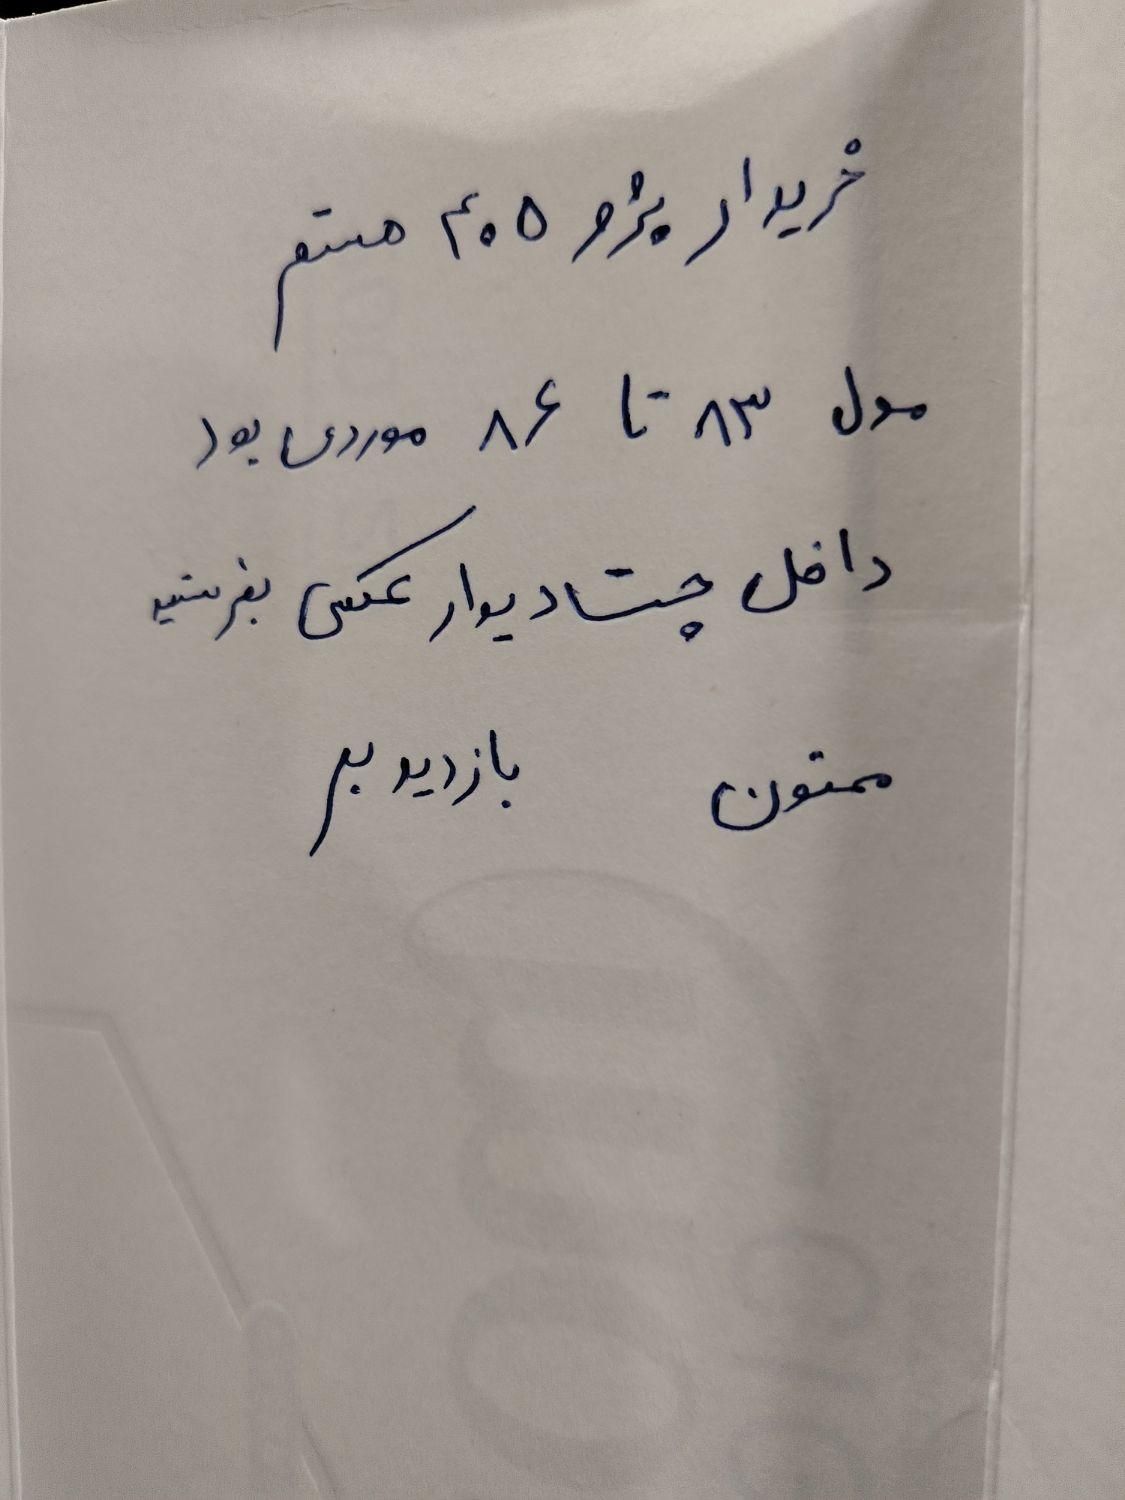 خریدار پژو ۴۰۵ هستم
مدل ۸۳ تا ۸۶ موردی بود
داخل چت دیوار عکس بفرستید
ممنون بازدید بم